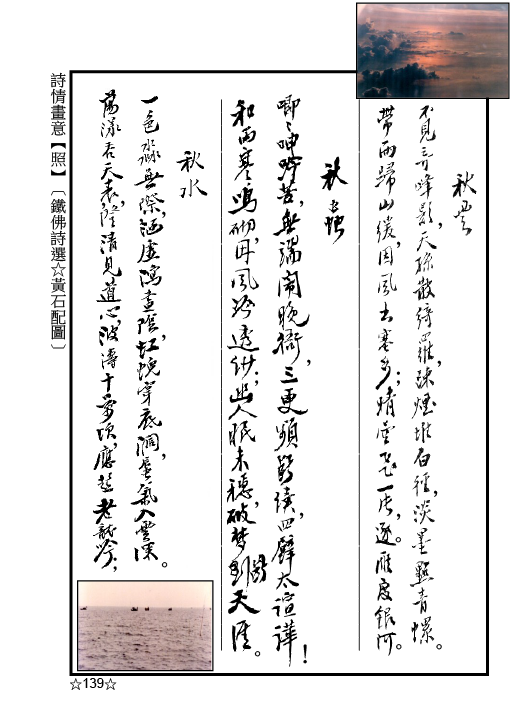 秋雲
不見奇峰影,天孫散綺羅,疎煙堆白徑,淡墨點青螺。
帶雨歸山緩,因風出塞多;晴雲飛一片,逐。雁度銀河。
秋蟲
唧唧呻吟苦,無端鬧晚衙,三更頻斷續,四壁太喧譁!
和雨寒鳴砌,因風冷透紗;幽人眠未穩,破夢到天涯。
秋水
一色淼無際,涵虛瀉 陰,虹蜺穿底澗,蜃氣入雲深。
蕩漾吞天表,澄清見道心,波濤十萬頃,應起老龍吟;
詩情畫意【照】〔鐵佛詩選☆黃石配圖〕
☆139☆